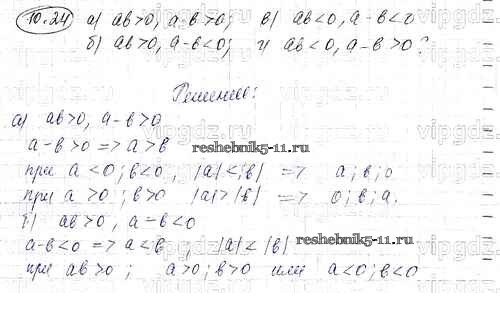 10.24 а) ab>0, a-b>0; в) ab<0, a-b<0
б) ab>0, a-b<0; г) ab<0, a-b>0?
Решение:
а) ab>0, a-b>0
a-b>0 => a>b
reshebnik5-11.ru
при a<0; b<0, |a|<|b| => a; b; 0
при a>0; b>0 |a|>|b| => 0; b; a.
б) ab>0, a-b<0
a-b<0 => a<b, |a|<|b|
reshebnik5-11.ru
при ab>0; a>0; b>0 или a<0; b<0
vipgdz.ru